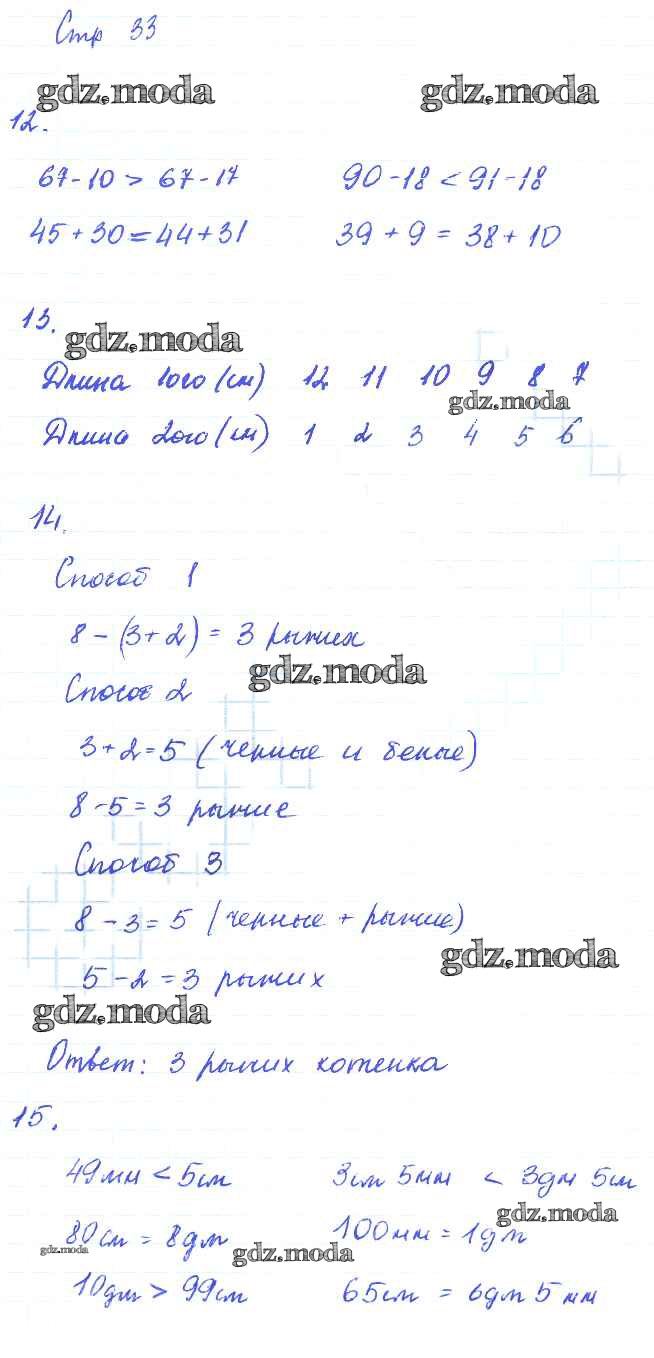 Стр 33
gdz.moda gdz.moda
12.
67-10 > 67-17 90-18 < 91-18
45+30=44+31 39+9 = 38+10
13. gdz.moda
Длина 1ого (см) 12 11 10 9 8 7
gdz.moda
Длина 2ого (см) 1 2 3 4 5 6
14.
Способ 1
8-(3+2) = 3 рыжих
gdz.moda
Способ 2
3+2=5 (черные и белые)
8-5=3 рыжие
Способ 3
8-3=5 (черные + рыжие)
gdz.moda
5-2=3 рыжих
gdz.moda
Ответ: 3 рыжих котенка
15.
49мм < 5см 3см 5мм < 3дм 5см
gdz.moda
80см = 8дм 100мм = 1дм
gdz.moda gdz.moda
10дм > 99см 65см = 6дм 5мм